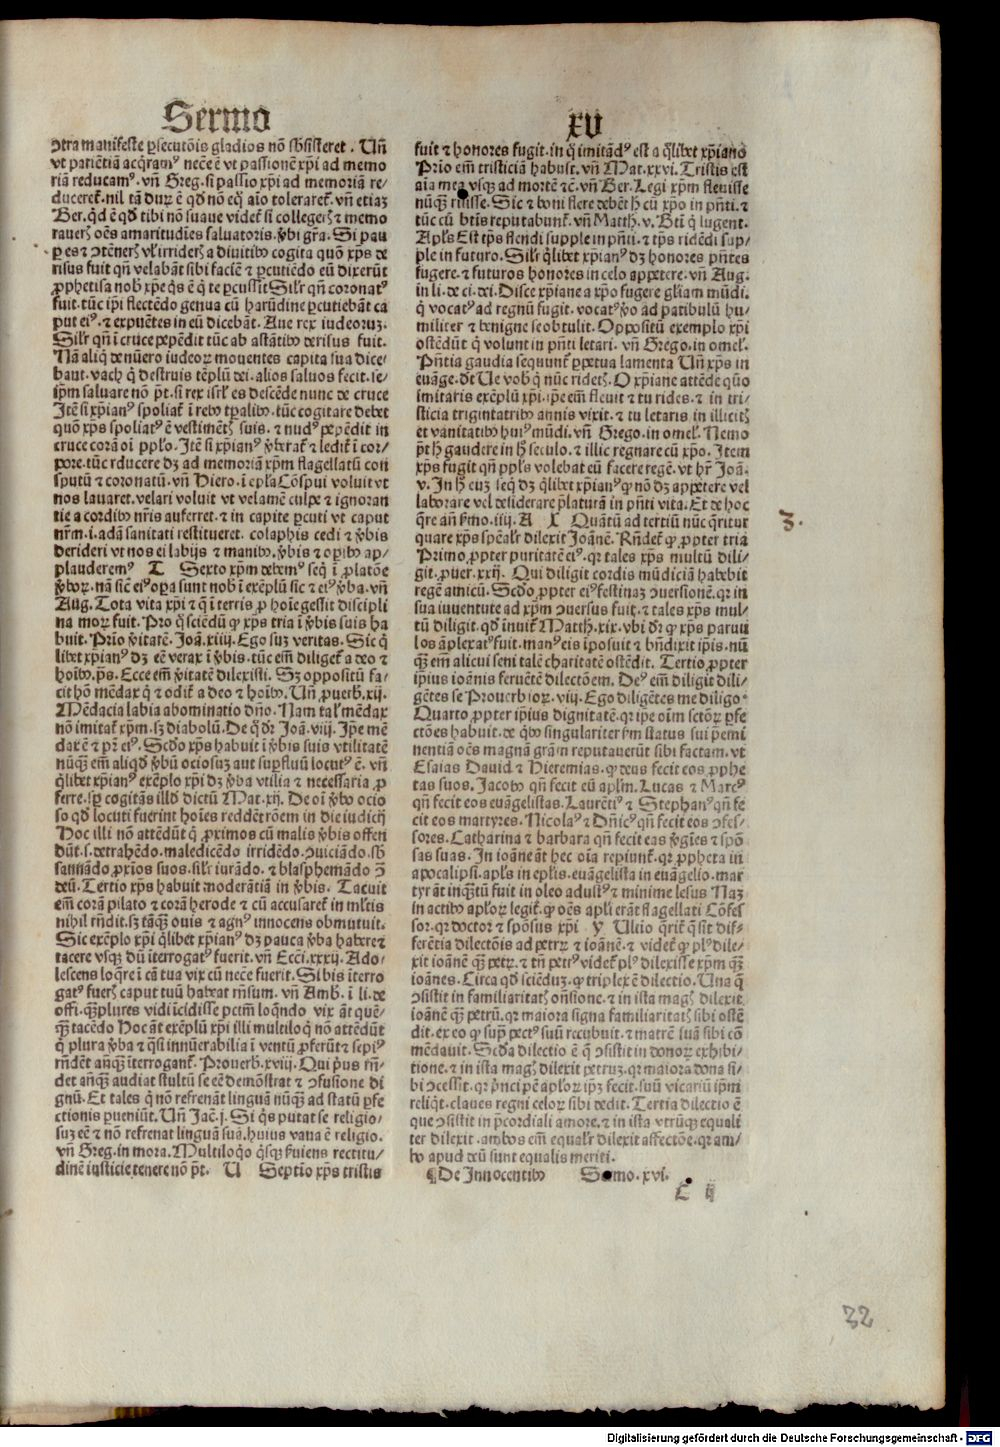 Sermo
xv
ↄtra manifeste ꝑsecutōis gladios nō sb̄sisteret. Uñ
vt patiētiā acq̄ramꝰ neēe ē vt passionē xp̄i ad memo
riā reducamꝰ. vñ Greg. si passio xp̄i ad memoriā re⸗
ducereť. nil tā durū ē qd̄ nō eq̄ aīo tolerareť. vñ etiaꝫ
Ber. qd̄ ē qd̄ tibi nō suaue videť si collegerꝭ ⁊ memo
rauerꝭ oēs amaritudīes saluatoris. v̄bi gr̄a. Si pau
ꝑ es ⁊ ↄtēnerꝭ vł irriderꝭ a diuitibꝰ cogita quō xp̄s de
risus fuit qñ velabāt sibi faciē ⁊ ꝑcutiēdo eū dixerūt
ꝓphetisa nob̄ xp̄e q̄s ē q̄ te ꝑcussit Silr̄ qñ coronatꝰ
fuit. tūc ip̄i flectēdo genua cū harūdine ꝑcutiebāt ca
put eiꝰ. ⁊ expuētes in eū dicebāt. Aue rex iudeoruꝫ.
Silr̄ qñ ī cruce pepēdit tūc ab astātibꝰ derisus fuit.
Nā aliq̄ de nūero iudeoꝝ mouentes capita sua dice⸗
bant. vach q̄ destruis tēplū dei. alios saluos fecit. se⸗
ip̄m saluare nō pt̄. si rex isrł es descēde nunc de cruce
Itē si xp̄ianꝰ spoliať ī rebꝰ tꝑalibꝰ. tūc cogitare debet
quō xp̄s spoliatꝰ ē vestimētꝭ suis. ⁊ nudꝰ pepēdit in
cruce corā oī pplo. Itē si xp̄ianꝰ v̄berať ⁊ lediť ī cor⸗
pore. tūc rducere dꝫ ad memoriā xp̄m flagellatū con
sputū ⁊ coronatū. vñ Hiero. ī epl̄a Cōspui voluit vt
nos lauaret. velari voluit vt velamē culpe ⁊ ignoran
tie a cordibꝰ nr̄is auferret. ⁊ in capite ꝑcuti vt caput
nr̄m. i. adā sanitati restitueret. colaphis cedi ⁊ v̄bis
derideri vt nos ei labijs ⁊ manibꝰ. v̄bis ⁊ oꝑibꝰ ap⸗
plauderemꝰ T Sexto xp̄m debemꝰ seq̄ ī ꝓlatōe
v̄boꝝ. nā sic̄ eiꝰ oꝑa sunt nob̄ ī exēplū sic ⁊ eiꝰ v̄ba. vñ
Aug. Tota vita xp̄i ⁊ q̄ ī terris ꝓ hoīe gessit discipli
na moꝝ fuit. Pro q̄ sciēdū ꝙ xp̄s tria ī v̄bis suis ha
buit. Prīo v̄itatē. Joā. xiiij. Ego suꝫ veritas. Sic q̄
libet xp̄ianꝰ dꝫ eē verax ī v̄bis. tūc em̄ diligeť a deo ⁊
hoībꝰ. ps̄. Ecce em̄ v̄itatē dilexisti. Sꝫ oppositū fa⸗
cit hō mēdax q̄ ⁊ odiť a deo ⁊ hoībꝰ. Uñ ꝓuerb̄. xij.
Mēdacia labia abominatio dn̄o. Nam tał mēdax
nō imitať xp̄m. sꝫ diabolū. De q̄ dr̄ Joā. viij. Ip̄e mē
dax ē ⁊ pr̄ eiꝰ. Scd̄o xp̄s habuit ī v̄bis suis vtilitatē
nūqꝫ em̄ aliqd̄ v̄bū ociosuꝫ aut suꝑfluū locutꝰ ē. vñ
q̄libet xp̄ianꝰ exēplo xp̄i dꝫ v̄ba vtilia ⁊ necessaria ꝓ
ferre. sꝑ cogitās illd̄ dictū Mat. xij. De oī v̄bo ocio
so qd̄ locuti fuerint hoīes reddēt rōem in die iudicij
Hoc illi nō attēdūt q̄ ꝓximos cū malis v̄bis offen
dūt. s. detrahēdo. maledicēdo irridēdo. ↄuiciādo. sb̄
sannādo ꝓxīos suos. silr̄ iurādo. ⁊ blasphemādo ↄ̄
deū. Tertio xp̄s habuit moderātiā in v̄bis. Tacuit
em̄ corā pilato ⁊ corā herode ⁊ cū accusareť in ml̄tis
nihil rn̄dit. sꝫ tāqꝫ ouis ⁊ agnꝰ innocens obmutuit.
Sic exēplo xp̄i q̄libet xp̄ianꝰ dꝫ pauca v̄ba habere ⁊
tacere vsqꝫ dū īterrogatꝰ fuerit. vñ Ecci. xxxij. Ado⸗
lescens loq̄re ī cā tua vix cū necēe fuerit. Si bis īterro
gatꝰ fuerꝭ caput tuū habeat rn̄sum. vñ Amb̄. ī li. de
offi. qꝫplures vidi īcidisse pctm̄ loq̄ndo vix āt quē⸗
qꝫ tacēdo Hoc āt exēplū xp̄i illi multiloq̄ nō attēdūt
q̄ plura v̄ba ⁊ q̄si innūerabilia ī ventū ꝓferūt ⁊ sepiꝰ
rn̄dēt anq̄ꝫ īterroganť. Prouerb̄. xviij. Qui pͥus rn̄⸗
det anq̄ꝫ audiat stultū se eē demōstrat ⁊ ↄfusione di
gnū. Et tales q̄ nō refrenāt linguā nūqꝫ ad statū ꝑfe
ctionis ꝑueniūt. Uñ Jac̄. j. Si q̄s putat se religio⸗
suꝫ eē ⁊ nō refrenat linguā suā. huius vana ē religio.
vñ Greg. in mora. Multiloq̄o q̄sqꝫ ẜuiens rectitu⸗
dinē iusticie tenere nō pt̄. U Septio xp̄s tristis
fuit ⁊ honores fugit. in q̄ imitādꝰ est a q̄libet xp̄iano
Prīo em̄ tristiciā habuit. vñ Mat. xxvi. Tristis est
aīa mea vsqꝫ ad mortē ⁊c̄. vñ Ber. Legi xp̄m fleuisse
nūqꝫ risisse. Sic ⁊ boni flere debēt hͨ cū xp̄o in pn̄ti. ⁊
tūc cū bt̄is reputabunť. vñ Matth. v. Bt̄i q̄ lugent.
Apl̄s Est tp̄s flendi supple in pn̄ti. ⁊ tp̄s ridēdi sup⸗
ple in futuro. Silr̄ q̄libet xp̄ianꝰ dꝫ honores pn̄tes
fugere. ⁊ futuros honores in celo appetere. vñ Aug.
in li. de ci. dei. Disce xp̄iane a xp̄o fugere gl̄iam mūdi.
q̄ vocatꝰ ad regnū fugit. vocatꝰ v̄o ad patibulū hu⸗
militer ⁊ benigne se obtulit. Oppositū exemplo xp̄i
ostēdūt q̄ volunt in pn̄ti letari. vñ Grego. in omel̄.
Pn̄tia gaudia sequunť ꝑpetua lamenta Uñ xp̄s in
euāge. dt̄ Ue vob̄ q̄ nūc ridetꝭ. O xp̄iane attēde quō
imitaris exēplū xp̄i. ip̄e em̄ fleuit ⁊ tu rides. ⁊ in tri⸗
sticia trigintatribꝰ annis vixit. ⁊ tu letaris in illicitꝭ
et vanitatibꝰ huiꝰ mūdi. vñ Grego. in omel̄. Nemo
pt̄ hͨ gaudere in hͦ seculo. ⁊ illic regnare cū xp̄o. Item
xp̄s fugit qñ ppl̄s volebat eū facere regē. vt hr̄ Joā.
v. In hͦ euꝫ seq̄ dꝫ q̄libet xp̄ianꝰ ꝙ nō dꝫ appetere vel
laborare vel desiderare p̄laturā in pn̄ti vita. Et de hoc
q̄re añ ẜmo. iiij. A X Quātū ad tertiū nūc q̄ritur
quare xp̄s spēałr dilexit Joānē. Rn̄deť ꝙ ꝓpter tria
Primo ꝓpter puritatē eiꝰ. qꝛ tales xp̄s multū dili⸗
git. ꝓuer. xxij. Qui diligit cordis mūdiciā habebit
regē amicū. Scd̄o ꝓpter eiꝰ festinaꝫ ↄuersionē. qꝛ in
sua iuuentute ad xp̄m ↄuersus fuit. ⁊ tales xp̄s mul⸗
tū diligit. qd̄ inuiť Matth. xix. vbi dr̄ ꝙ xp̄s paruu
los āplexatꝰ fuit. manꝰ eis īposuit ⁊ bn̄dixit ip̄is. nū
qꝫ em̄ alicui seni talē charitatē ostēdit. Tertio ꝓpter
ip̄ius ioānis feruētē dilectōem. Deꝰ em̄ diligit dili⸗
gētes se Prouerbioꝝ. viij. Ego diligētes me diligo.
Quarto ꝓpter ip̄ius dignitatē. qꝛ ip̄e oīm sctōꝝ ꝑfe
ctōes habuit. de q̄bꝰ singulariter ẜm status sui p̄emi
nentiā oēs magnā gr̄am reputauerūt sibi factam. vt
Esaias Dauid ⁊ Hieremias. ꝙ deus fecit eos ꝓphe
tas suos. Jacobꝰ qñ fecit eū apl̄m. Lucas ⁊ Marcꝰ
qñ fecit eos euāgelistas. Laurētiꝰ ⁊ Stephanꝰ qñ fe
cit eos martyres. Nicolaꝰ ⁊ Dn̄icꝰ qñ fecit eos ↄfes⸗
sores. Catharina ⁊ barbara qñ fecit eas v̄gīes ⁊ spō
sas suas. In ioāne āt hec oīa reꝑiunť. qꝛ ꝓpheta in
apocalipsi. apl̄s in epl̄is. euāgelista in euāgelio. mar
tyr āt inq̄ꝫtū fuit in oleo adustꝰ ⁊ minime lesus Naꝫ
in actibꝰ apl̄oꝝ legiť. ꝙ oēs apl̄i erāt flagellati Cōfes
sor. qꝛ doctor ⁊ spōsus xp̄i y Ultio q̄riť q̄ sit dif⸗
ferētia dilectōnis ad petrꝫ ⁊ ioānē. ⁊ videť ꝙ plꝰ dile⸗
xit ioānē qꝫ petꝝ. ⁊ tn̄ petrꝰ videť plꝰ dilexisse xp̄m qꝫ
ioānes. Circa qd̄ sciēduꝫ. ꝙ triplex ē dilectio. Una q̄
ↄsistit in familiaritatꝭ oñsione. ⁊ in ista magꝭ dilexit
ioānē qꝫ petrū. qꝛ maiora signa familiaritatꝭ sibi ostē
dit. ex eo ꝙ supꝑ pectꝰ suū recubuit. ⁊ matrē suā sibi cō
mēdauit. Scd̄a dilectio ē q̄ ↄsistit in donoꝝ exhibi⸗
tione. ⁊ in ista magꝭ dilexit petruꝫ. qꝛ maiora dona si⸗
bi ↄcessit. qꝛ p̄ncipem apl̄oꝝ ip̄ꝫ fecit. suū vicariū ip̄m
reliq̄t. claues regni celoꝝ sibi dedit. Tertia dilectio ē
que ↄsistit in p̄cordiali amore. ⁊ in ista vtrūqꝫ equali
ter dilexit. ambos em̄ equalr̄ dilexit affectōe. qꝛ am⸗
bo apud deū sunt equalis meriti.
¶ De Innocentibꝰ Sermo. xvi.
E ij
3.
32
Digitalisierung gefördert durch die Deutsche Forschungsgemeinschaft - DFG